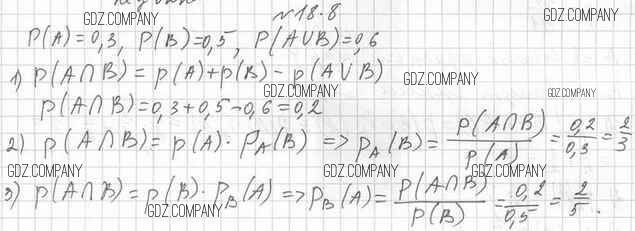 №18.8
GDZ.COMPANY GDZ.COMPANY
P(A)=0,3, P(B)=0,5, P(A∪B)=0,6
1) p(A∩B) = p(A)+p(B) - p(A∪B)
GDZ.COMPANY GDZ.COMPANY GDZ.COMPANY
p(A∩B)=0,3+0,5-0,6=0,2
2) p(A∩B)= p(A)·P_A(B) => P_A(B)= P(A∩B)/P(A) = 0,2/0,3 = 2/3
GDZ.COMPANY GDZ.COMPANY GDZ.COMPANY
3) p(A∩B)=p(B)·P_B(A) => P_B(A)= P(A∩B)/P(B) = 0,2/0,5 = 2/5.
GDZ.COMPANY